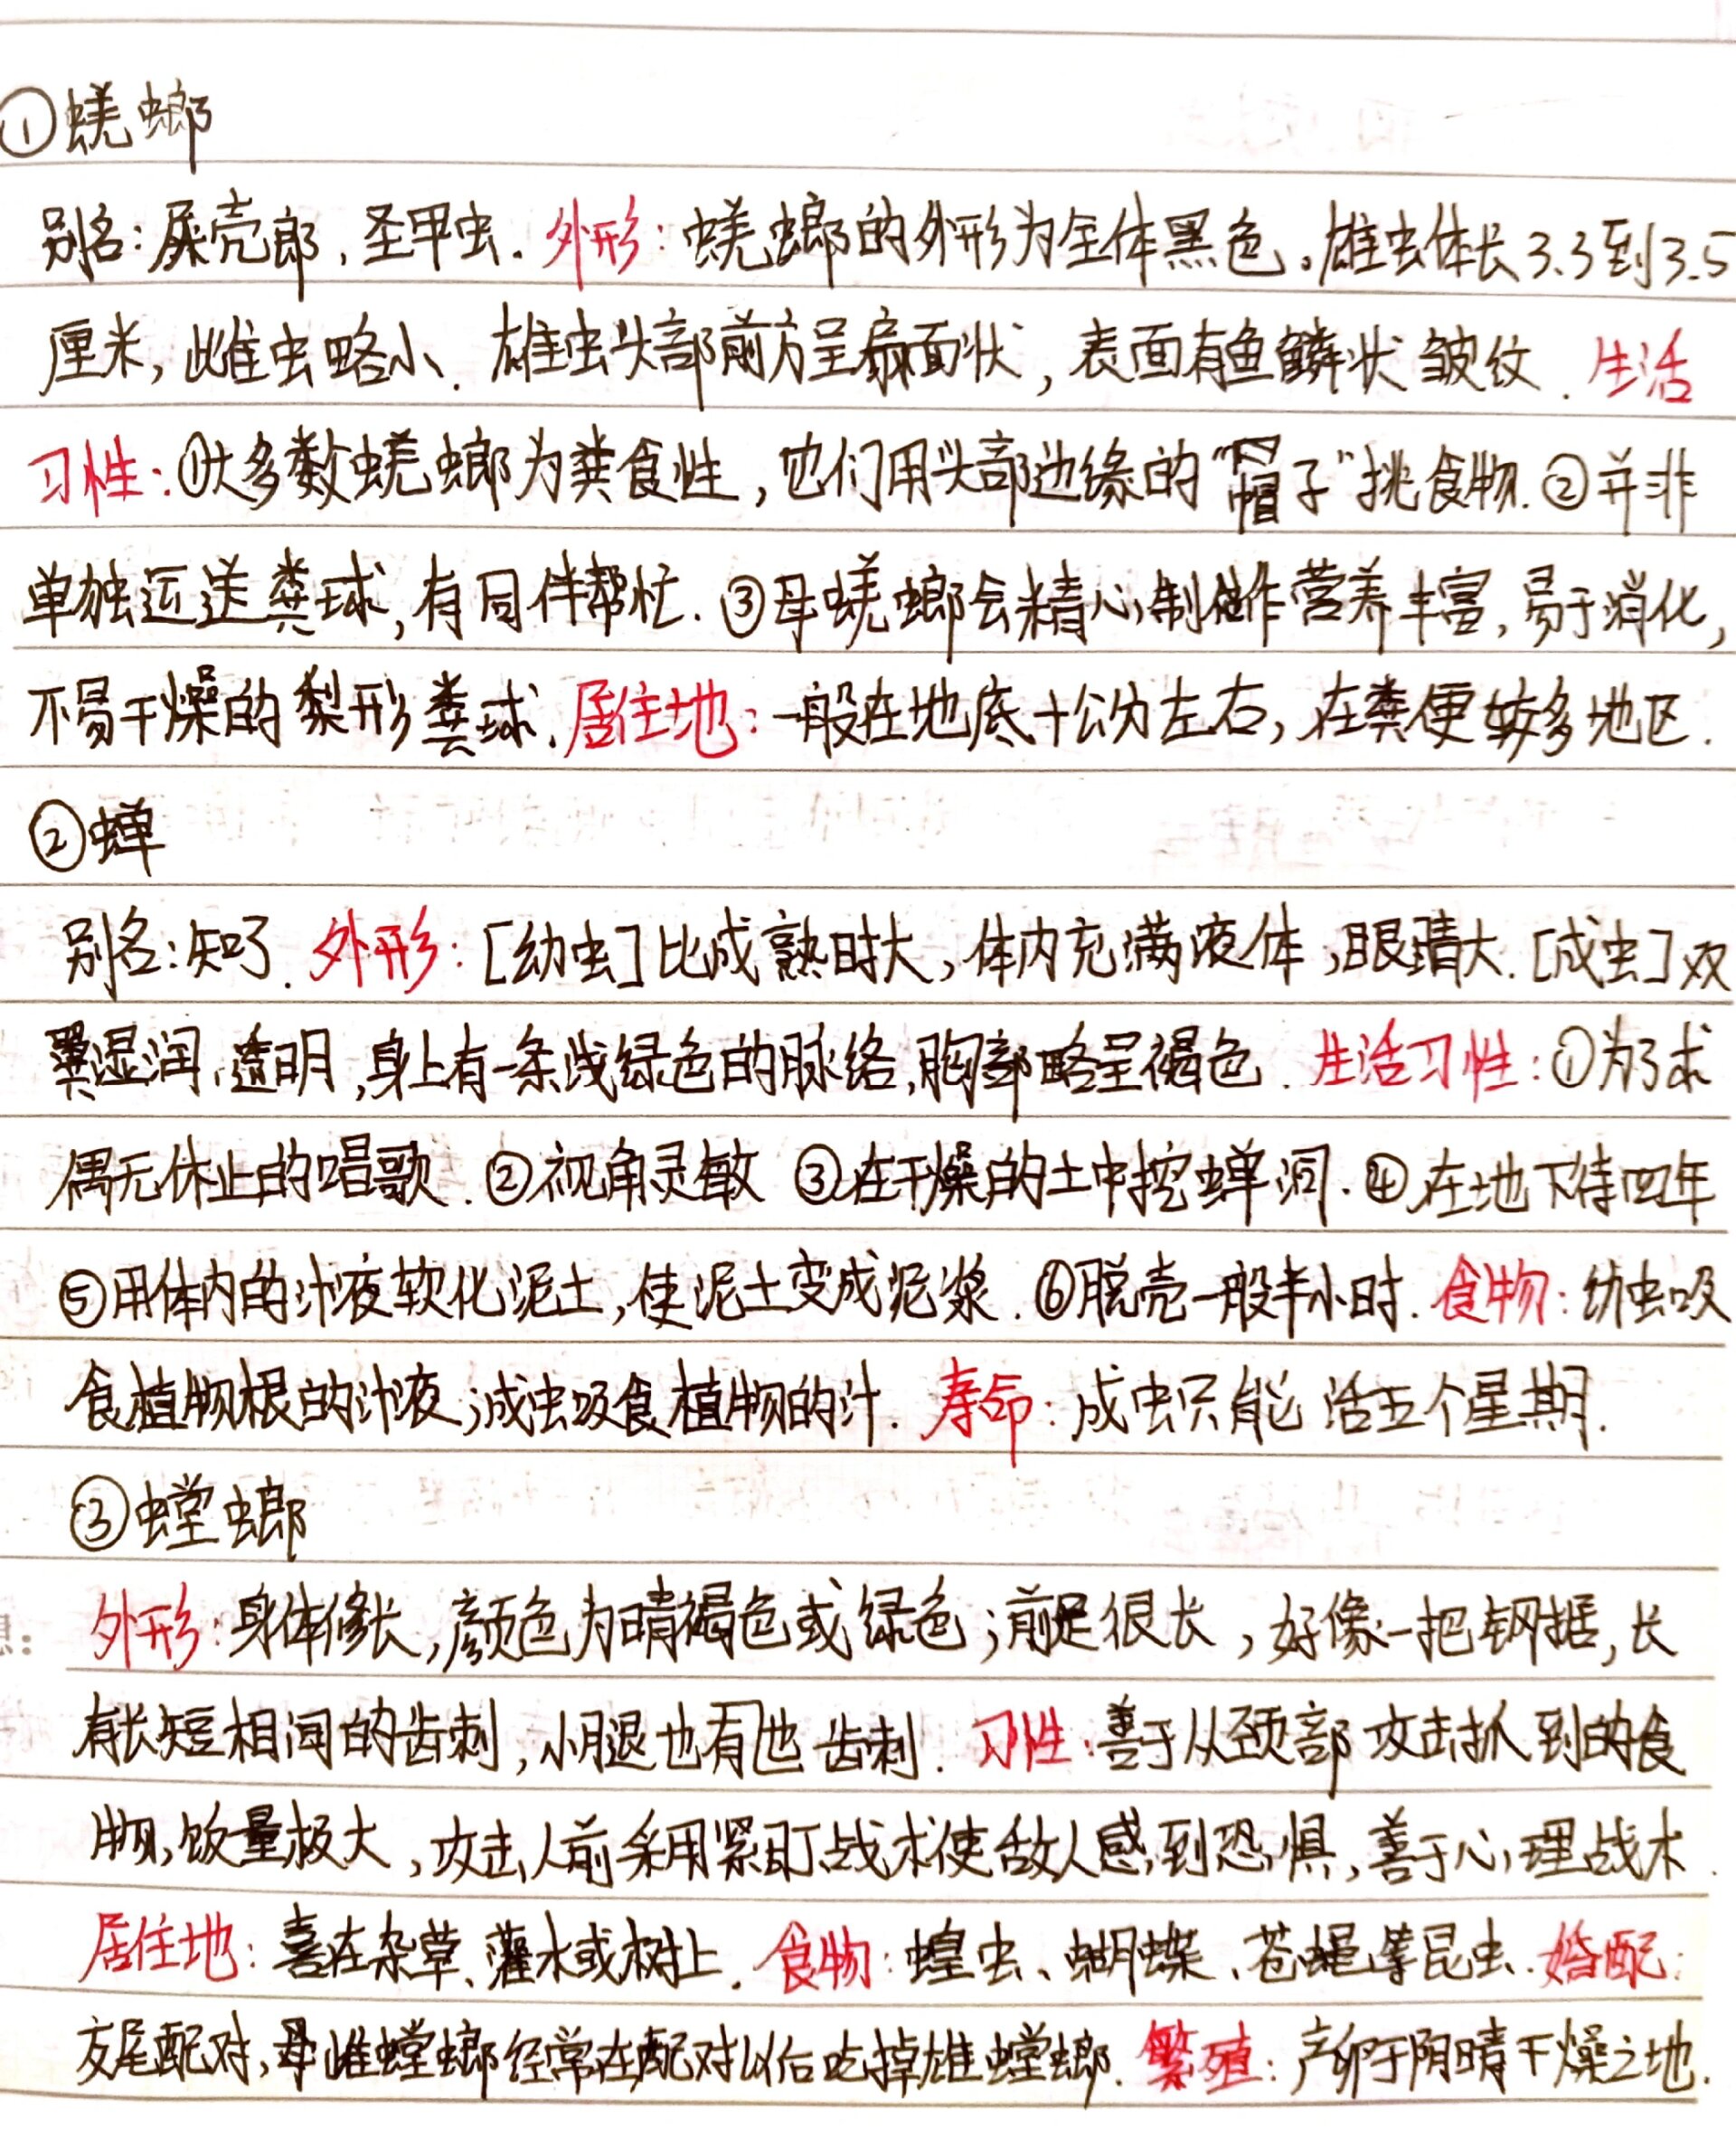 ①蜣螂
别名:屎壳郎,圣甲虫.外形:蜣螂的外形为全体黑色。雄虫体长3.3到3.5
厘米,雌虫略小.雄虫头部前方呈扇面状,表面有鱼鳞状皱纹.生活
习性:①大多数蜣螂为粪食性,他们用头部边缘的“帽子”挑食物.②并非
单独运送粪球,有同伴帮忙.③母蜣螂会精心制作营养丰富,易于消化,
不易干燥的梨形粪球.居住地:一般在地底十公分左右,在粪便较多地区.
②蝉
别名:知了.外形:[幼虫]比成熟时大,体内充满液体,眼睛大.[成虫]双
翼湿润,透明,身上有一条浅绿色的脉络,胸部略呈褐色.生活习性:①为了求
偶无休止的唱歌.②视角灵敏 ③在干燥的土中挖蝉洞.④在地下待四年
⑤用体内的汁液软化泥土,使泥土变成泥浆.⑥脱壳一般半小时.食物:幼虫吸
食植物根的汁液;成虫吸食植物的汁.寿命:成虫只能活五个星期.
③螳螂
外形:身体修长,颜色为暗褐色或绿色;前足很长,好像一把钢据,长
有长短相间的齿刺,小腿也有也齿刺.习性:善于从颈部攻击抓到的食
物,饭量极大,攻击人前采用紧盯战术使敌人感到恐惧,善于心理战术.
居住地:喜在杂草、灌木或树上.食物:蝗虫、蝴蝶、苍蝇等昆虫.婚配:
交尾配对,母雌螳螂经常在配对以后吃掉雄螳螂.繁殖:产卵于阴晴干燥之地.